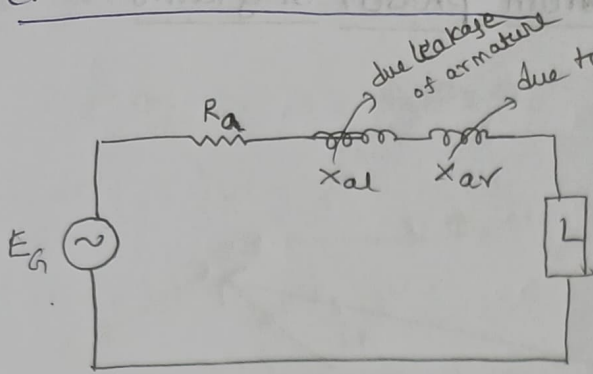 due leakage
of armature
due to
Ra
Xal
Xar
EG
L